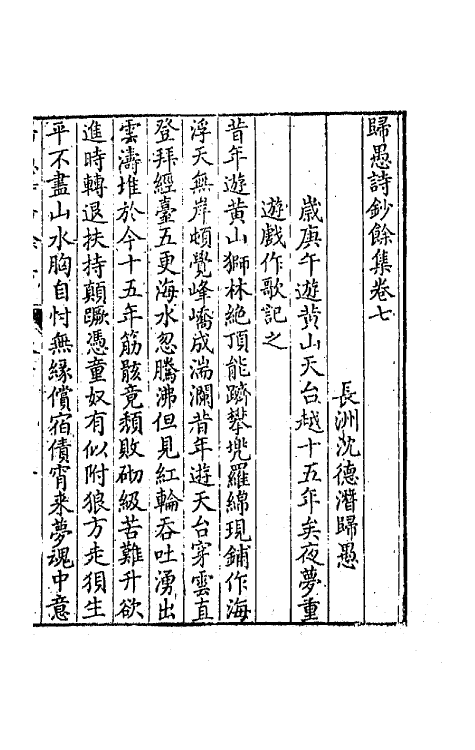 歸愚詩鈔餘集卷七
長洲沈德潛歸愚
歲庚午遊黃山天台越十五年矣夜夢重
遊戲作歌記之
昔年遊黃山獅林絕頂能躋攀兠羅綿現鋪作海
浮天無岸頓覺峰嶠成湍瀾昔年遊天台穿雲直
登拜經臺五更海水忽騰沸但見紅輪吞吐湧出
雲濤堆於今十五年筋骸竟頹敗砌級苦難升欲
進時轉退扶持顛蹶憑童奴有似附狼方走狽生
平不盡山水胸自忖無緣償宿債宵来夢魂中意